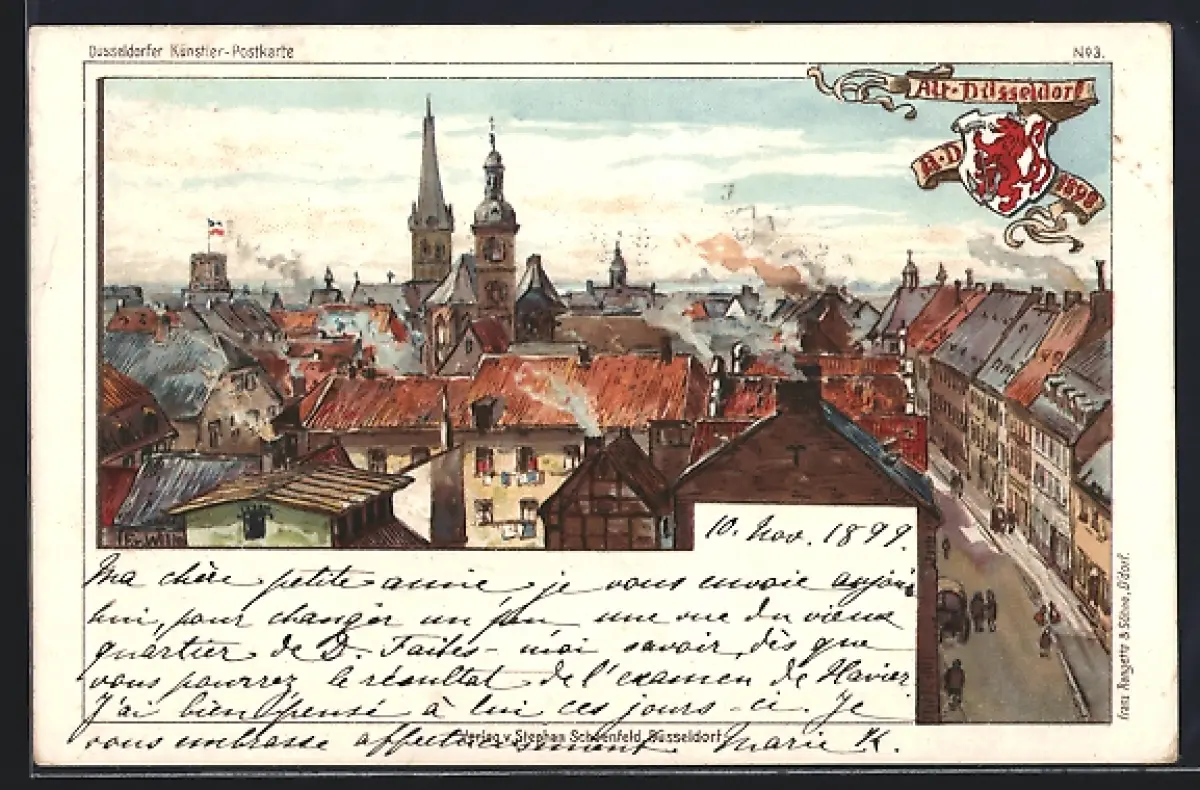 Düsseldorfer Künstler-Postkarte
No 3.
Alt-Düsseldorf
A.D
1898
10. Nov. 1899.
Ma chère petite amie, je vous envoie aujour
hui, pour changer un peu une vue du vieux
quartier de D. Faites-moi savoir dès que
vous pourrez le résultat de l'examen de
J'ai bien pensé à lui ces jours-ci. Je
vous embrasse affectueusement Marie K.
Verlag v. Stephan Schoenfeld, Düsseldorf.
Franz Rangette & Söhne, D'dorf.